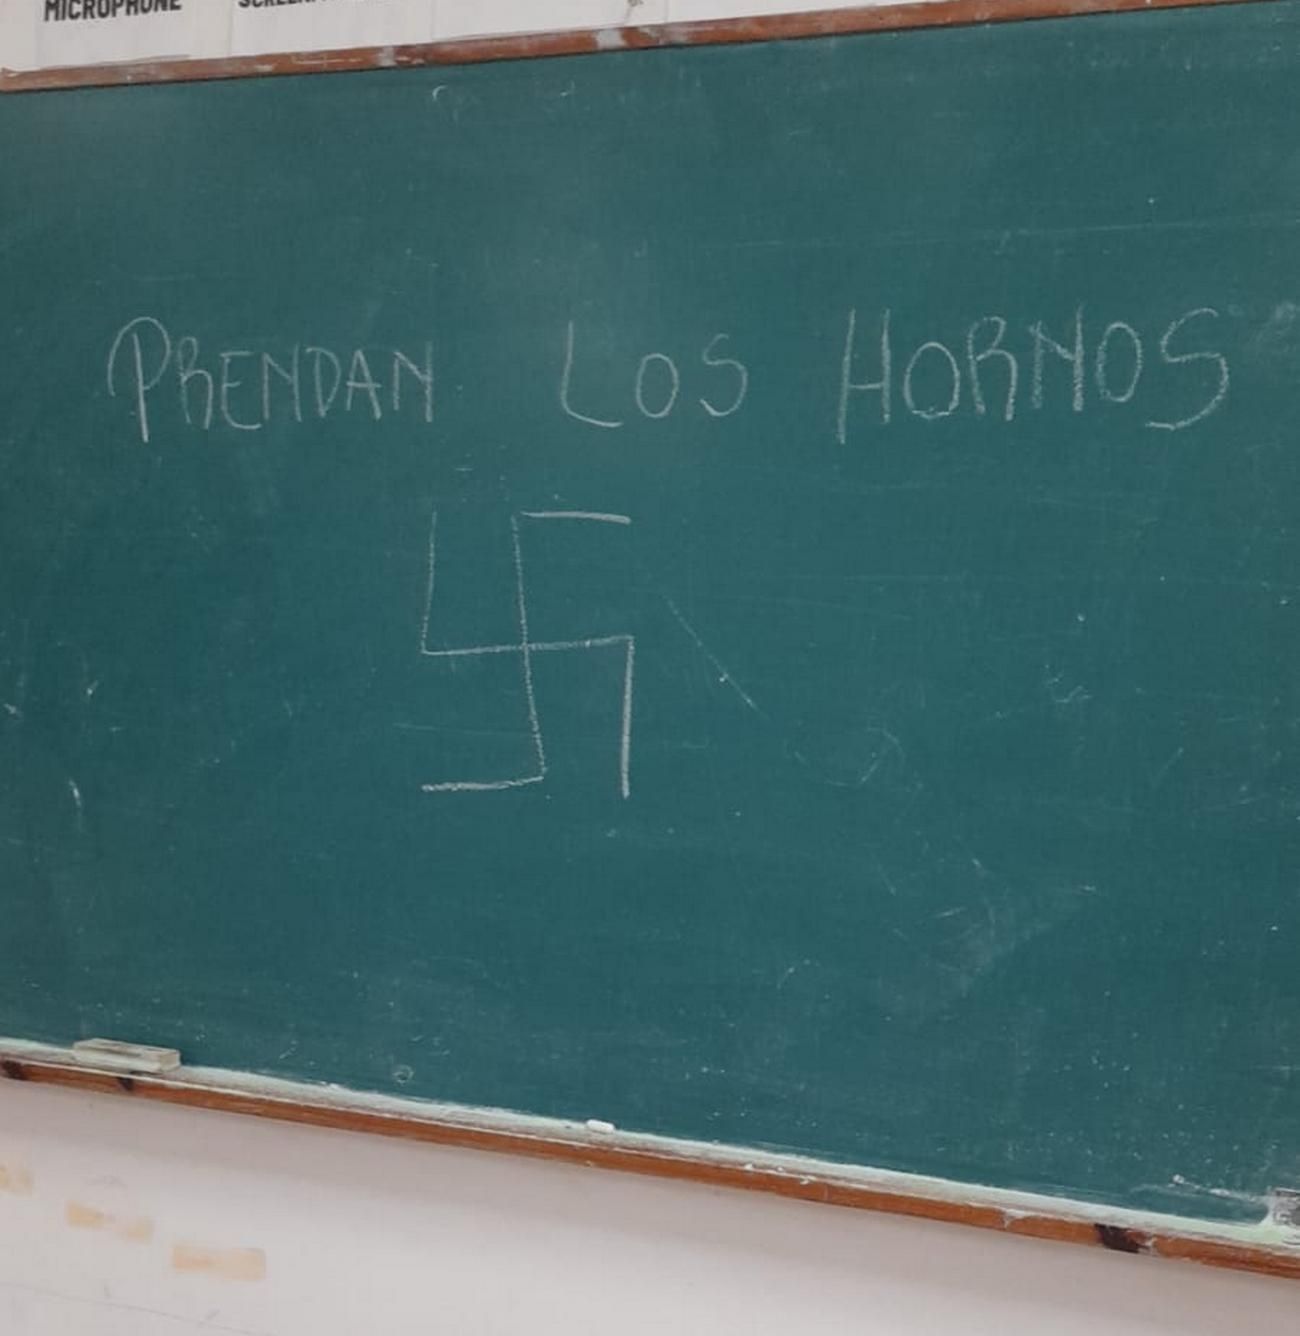 MICROPHONE
PRENDAN LOS HORNOS